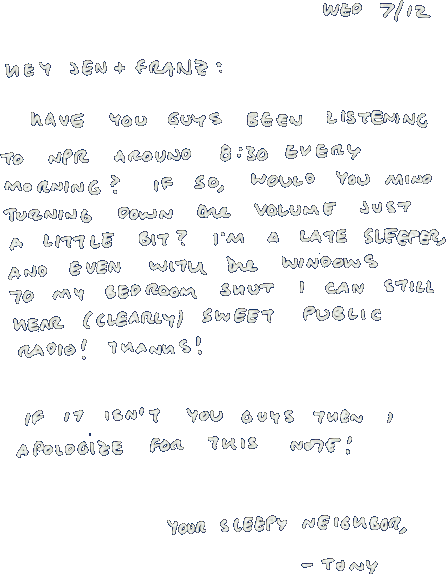 WED 7/12
HEY JEN + FRANZ:
HAVE YOU GUYS BEEN LISTENING
TO NPR AROUND 8:30 EVERY
MORNING? IF SO, WOULD YOU MIND
TURNING DOWN THE VOLUME JUST
A LITTLE BIT? I'M A LATE SLEEPER
AND EVEN WITH THE WINDOWS
TO MY BEDROOM SHUT I CAN STILL
HEAR (CLEARLY) SWEET PUBLIC
RADIO! THANKS!
IF IT ISN'T YOU GUYS THEN I
APOLOGIZE FOR THIS NOTE!
YOUR SLEEPY NEIGHBOR,
- TONY